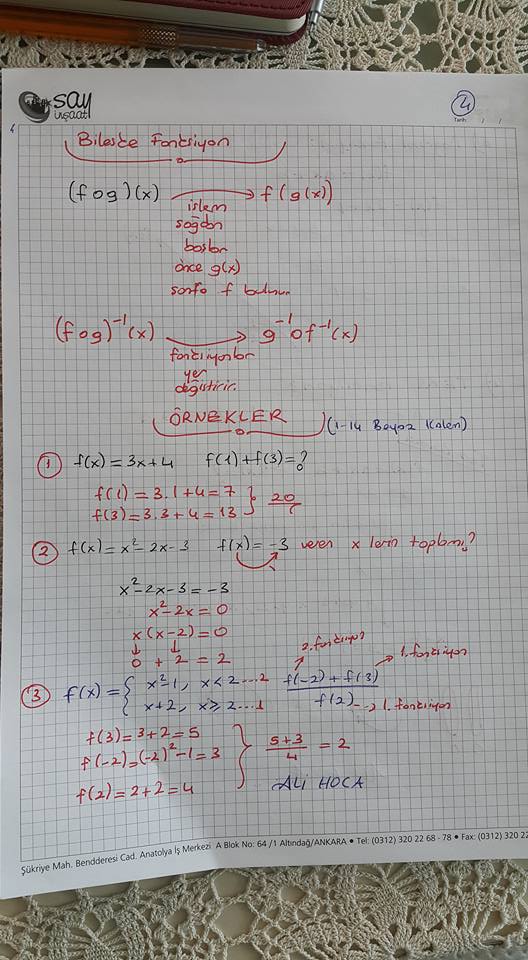 say
inşaat
4
Tarih: / /
Bileşke Fonksiyon
(fog)(x) → f(g(x))
işlem
sağdan
başlar
önce g(x)
sonra f bulunur
(fog)⁻¹(x) → g⁻¹of⁻¹(x)
fonksiyonlar
yer
değiştirir.
ÖRNEKLER (1-14 Beyaz Kalem)
1 f(x) = 3x+4 f(1)+f(3)=?
f(1) = 3.1+4 = 7
f(3) = 3.3+4 = 13 } 20
2 f(x) = x²-2x-3 f(x) = -3 veren x lerin toplamı?
x²-2x-3 = -3
x²-2x = 0
x(x-2) = 0
0 + 2 = 2
2. fonksiyon
1. fonksiyon
3 f(x) = { x²-1, x<2 ...2 f(-2)+f(3)
x+2, x≥2 ...1 f(2) → 1. fonksiyon
f(3) = 3+2 = 5
f(-2) = (-2)²-1 = 3 } 5+3/4 = 2
f(2) = 2+2 = 4
ALİ HOCA
Şükriye Mah. Bendderesi Cad. Anatolya İş Merkezi A Blok No: 64 /1 Altındağ/ANKARA • Tel: (0312) 320 22 68 - 78 • Fax: (0312) 320 22